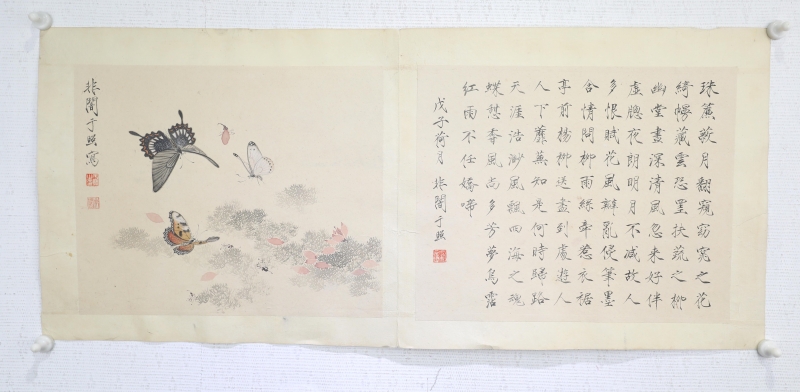 珠簾蔽月翻窺窈窕之花
綺幔藏雲恐罣扶疏之柳
幽堂晝深清風忽來好伴
虛牕夜朗明月不减故人
多恨賦花風瓣亂侵筆墨
含情問柳雨絲牽惹衣裾
亭前楊柳送盡到處遊人
山下蘼蕪知是何時歸路
天涯浩渺風飄四海之魂
蝶憩香風尚多芳夢鳥霑
紅雨不任嬌啼
戊子荷月 非闇于照
非闇于照寫